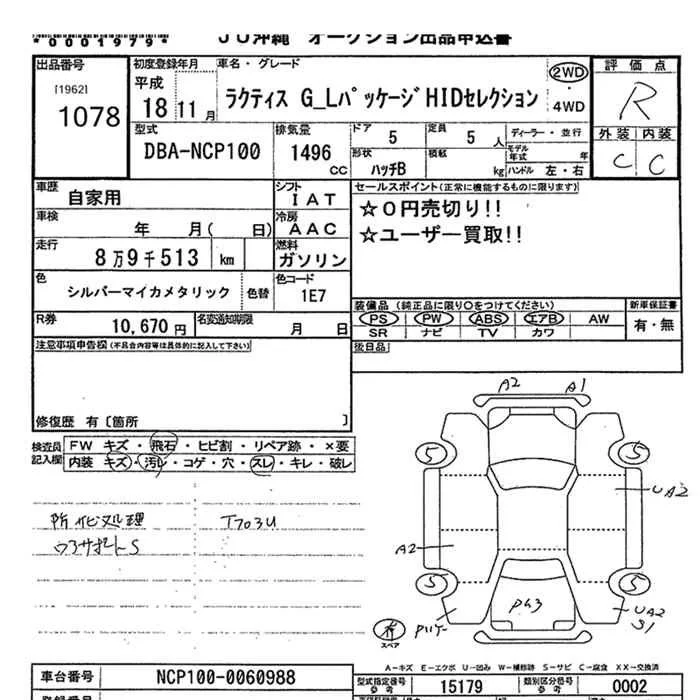 *0001979*
JU沖縄 オークション出品申込書
出品番号
[1962]
1078
初度登録年月
平成
18 11 月
車名・グレード
ラクティス G_Lパッケージ HIDセレクション
2WD
・
4WD
評価点
R
外装 内装
C C
型式
DBA-NCP100
排気量
1496 CC
ドア 5
定員 5 人
形状 ハッチB
積載 kg
ディーラー・並行
モデル年式 年
ハンドル 左・右
車歴
自家用
シフト
IAT
車検 年 月( 日)
冷房
AAC
走行
8万9千513 km
燃料
ガソリン
色
シルバーマイカメタリック
色替
色コード
1E7
R券
10,670 円
名変通知期限
月 日
セールスポイント(正常に機能するものに限ります)
☆0円売切り!!
☆ユーザー買取!!
装備品 (純正品に限り○をつけてください)
PS PW ABS エアB AW
SR ナビ TV カワ
新車保証書
有・無
後日品
注意事項申告欄(不具合内容等は具体的に記入して下さい)
修復歴 有〔箇所 〕
検査員記入欄
FW キズ・飛石・ヒビ割・リペア跡・×要
内装 キズ・汚レ・コゲ・穴・スレ・キレ・破レ
所々サビ処理
T703U
ウラサポートS
A2
A1
5
5
UA2
A2
5
5
UA2
S1
スペア
A-キズ E-エクボ U-凹み W-補修跡 S-サビ C-腐食 XX-交換済
車台番号
NCP100-0060988
型式指定番号
参考
15179
類別区分番号
参考
0002